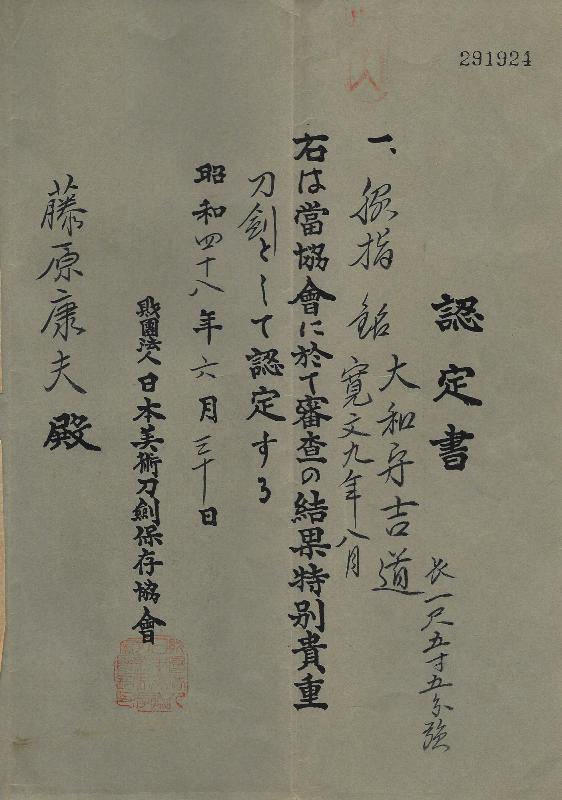 291924
認定書
一、脇指 銘 大和守吉道
寛文九年八月
長一尺五寸五分強
右は當協會に於て審査の結果特別貴重
刀劍として認定する
昭和四十八年六月三十日
財團法人日本美術刀劍保存協會
藤原康夫殿